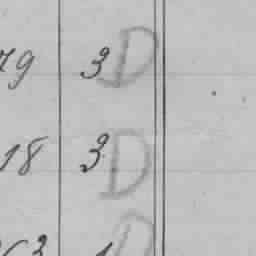 79 3 D
18 3 D
3 1 D